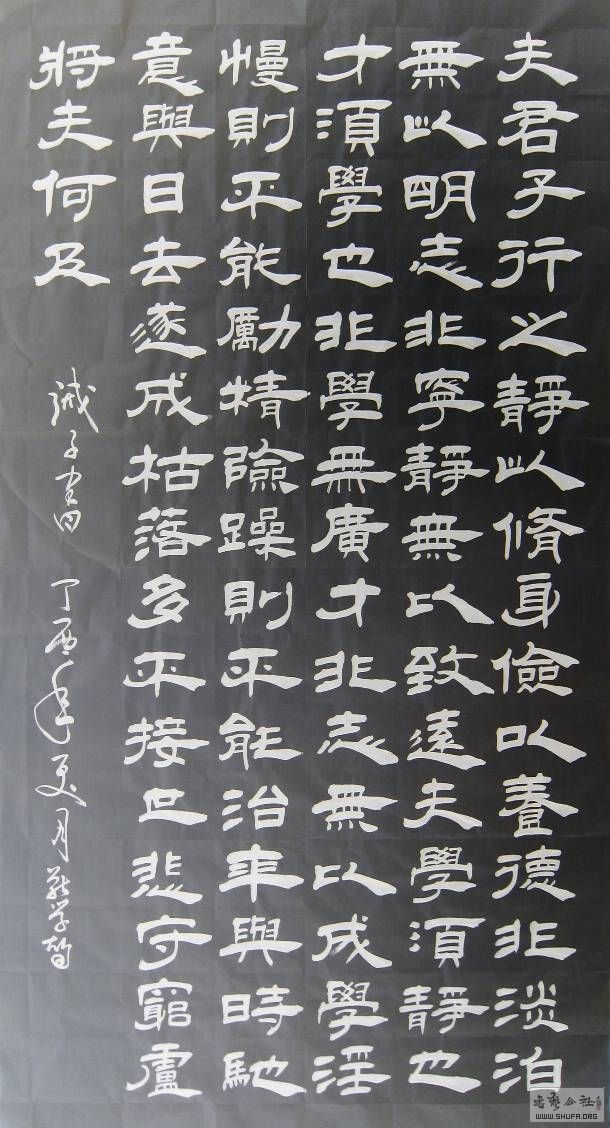 夫君子行之靜以脩身儉以養德非淡泊
無以明志非寧靜無以致遠夫學須靜也
才須學也非學無廣才非志無以成學淫
慢則不能勵精險躁則不能治年與時馳
意與日去遂成枯落多不接世悲守窮盧
將夫何及
誡子書 丁酉年夏月
書藝公社
WWW.SHUFA.ORG